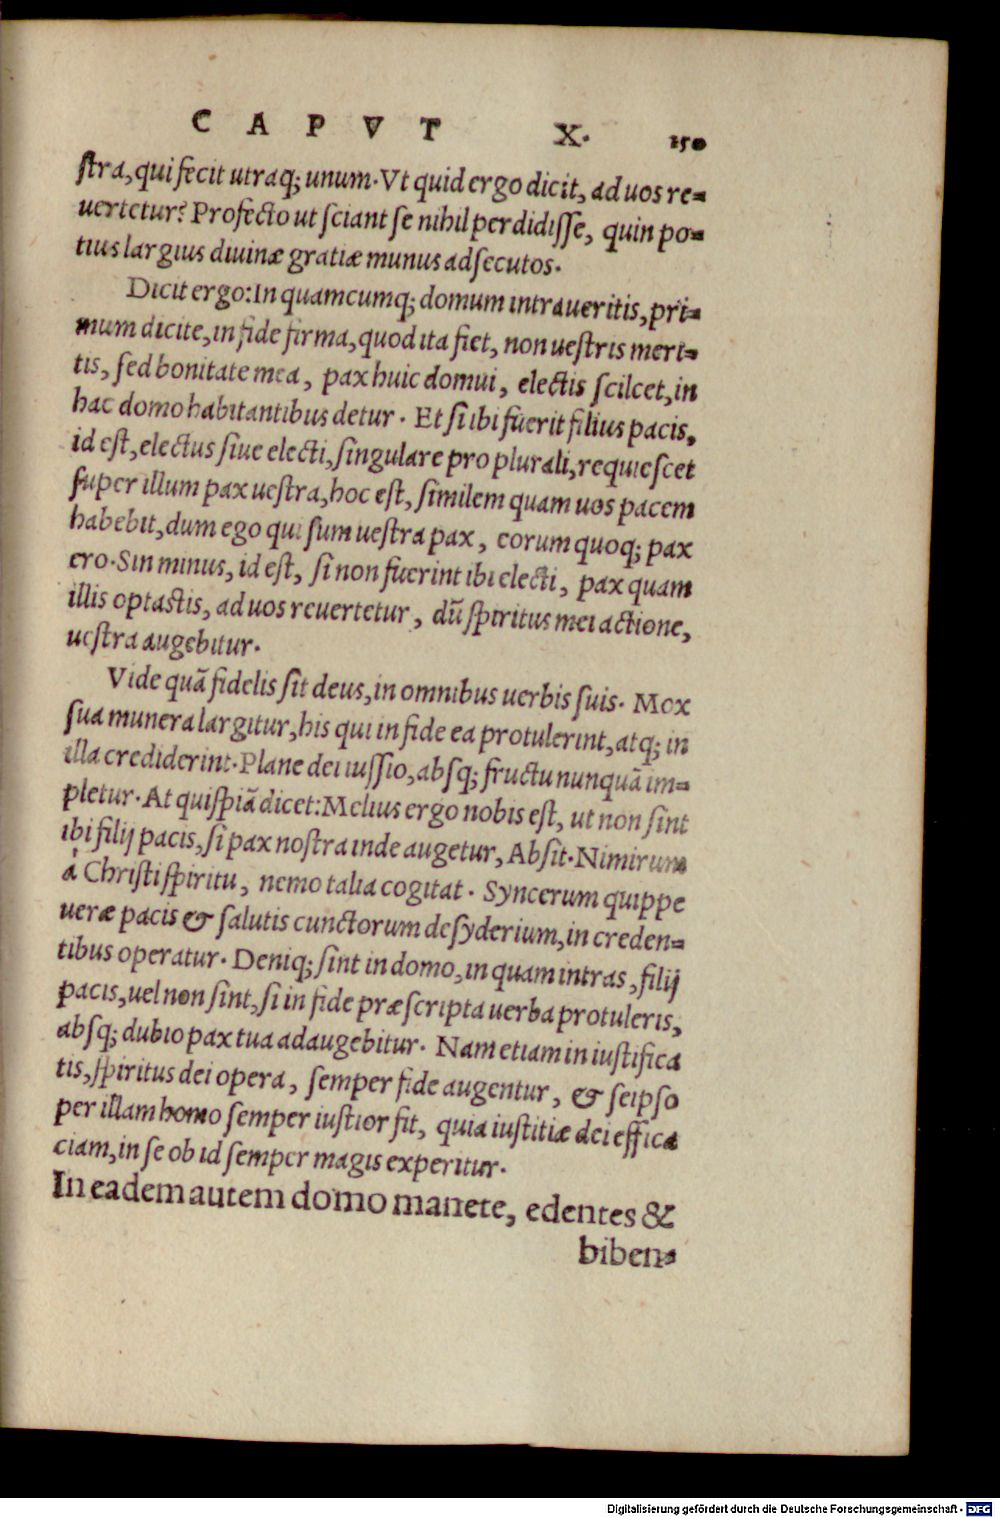 CAPVT X. 150
ſtra, qui fecit utraq; unum. Vt quid ergo dicit, ad uos re-
uertetur? Profecto ut ſciant ſe nihil perdidiſſe, quin po-
tius largius diuinæ gratiæ munus adſecutos.
Dicit ergo: In quamcumq; domum intraueritis, pri-
mum dicite, in fide firma, quod ita fiet, non ueſtris meri-
tis, ſed bonitate mea, pax huic domui, electis ſcilcet, in
hac domo habitantibus detur. Et ſi ibi fuerit filius pacis,
id eſt, electus ſiue electi, ſingulare pro plurali, requieſcet
ſuper illum pax ueſtra, hoc eſt, ſimilem quam uos pacem
habebit, dum ego qui ſum ueſtra pax, eorum quoq; pax
ero. Sin minus, id eſt, ſi non fuerint ibi electi, pax quam
illis optaſtis, ad uos reuertetur, dũ ſpiritus mei actione,
ueſtra augebitur.
Vide quã fidelis ſit deus, in omnibus uerbis ſuis. Mox
ſua munera largitur, his qui in fide ea protulerint, atq; in
illa crediderint. Plane dei iuſſio, abſq; fructu nunquã im-
pletur. At quiſpiã dicet: Melius ergo nobis eſt, ut non ſint
ibi filij pacis, ſi pax noſtra inde augetur, Abſit. Nimirum
à Chriſti ſpiritu, nemo talia cogitat. Syncerum quippe
ueræ pacis & ſalutis cunctorum deſyderium, in creden-
tibus operatur. Deniq; ſint in domo, in quam intras, filij
pacis, uel non ſint, ſi in fide præſcripta uerba protuleris,
abſq; dubio pax tua adaugebitur. Nam etiam in iuſtifica
tis, ſpiritus dei opera, ſemper fide augentur, & ſeipſo
per illam homo ſemper iuſtior fit, quia iuſtitiæ dei effica
ciam, in ſe ob id ſemper magis experitur.
In eadem autem domo manete, edentes &
biben-
Digitalisierung gefördert durch die Deutsche Forschungsgemeinschaft - DFG